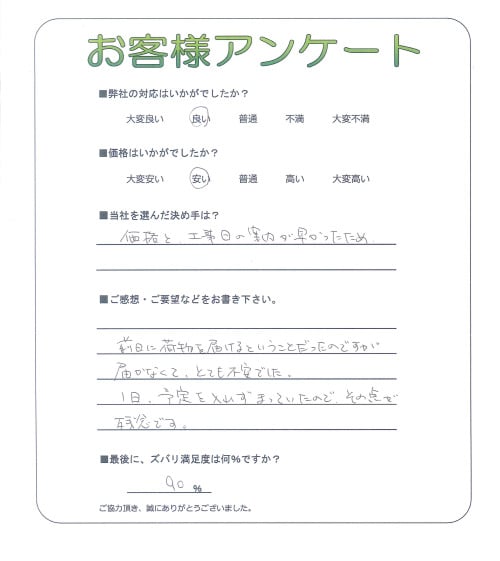 お客様アンケート
■弊社の対応はいかがでしたか？
大変良い 良い 普通 不満 大変不満
■価格はいかがでしたか？
大変安い 安い 普通 高い 大変高い
■当社を選んだ決め手は？
価格と、工事日の案内が早かったため
■ご感想・ご要望などをお書き下さい。
前日に荷物を届けるということだったのですが
届かなくて、とても不安でした。
1日、予定を入れずまっていたので、その点で
残念です。
■最後に、ズバリ満足度は何％ですか？
90 ％
ご協力頂き、誠にありがとうございました。